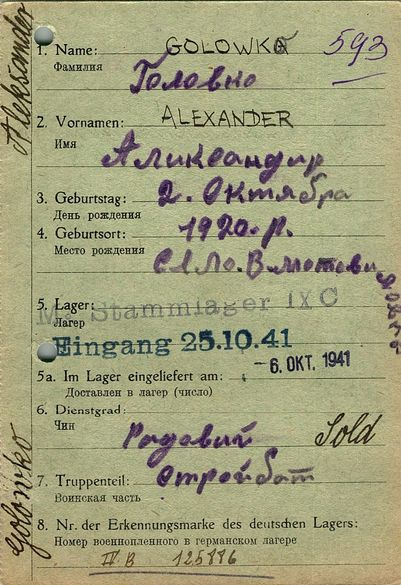 Aleksander
1. Name: GOLOWKO 593
Фамилия Головко
2. Vornamen: ALEXANDER
Имя Александир
3. Geburtstag: 2. Октября
День рождения
4. Geburtsort: 1920. р.
Место рождения
Село.
5. Lager: M. Stammlager IX C
Лагерь
Eingang 25.10.41
-6. ОКТ. 1941
5a. Im Lager eingeliefert am:
Доставлен в лагерь (число)
6. Dienstgrad:
Чин Радовий Sold
7. Truppenteil: Стройбат
Воинская часть
8. Nr. der Erkennungsmarke des deutschen Lagers:
Номер военнопленного в германском лагере
IV B 125886
Golowko